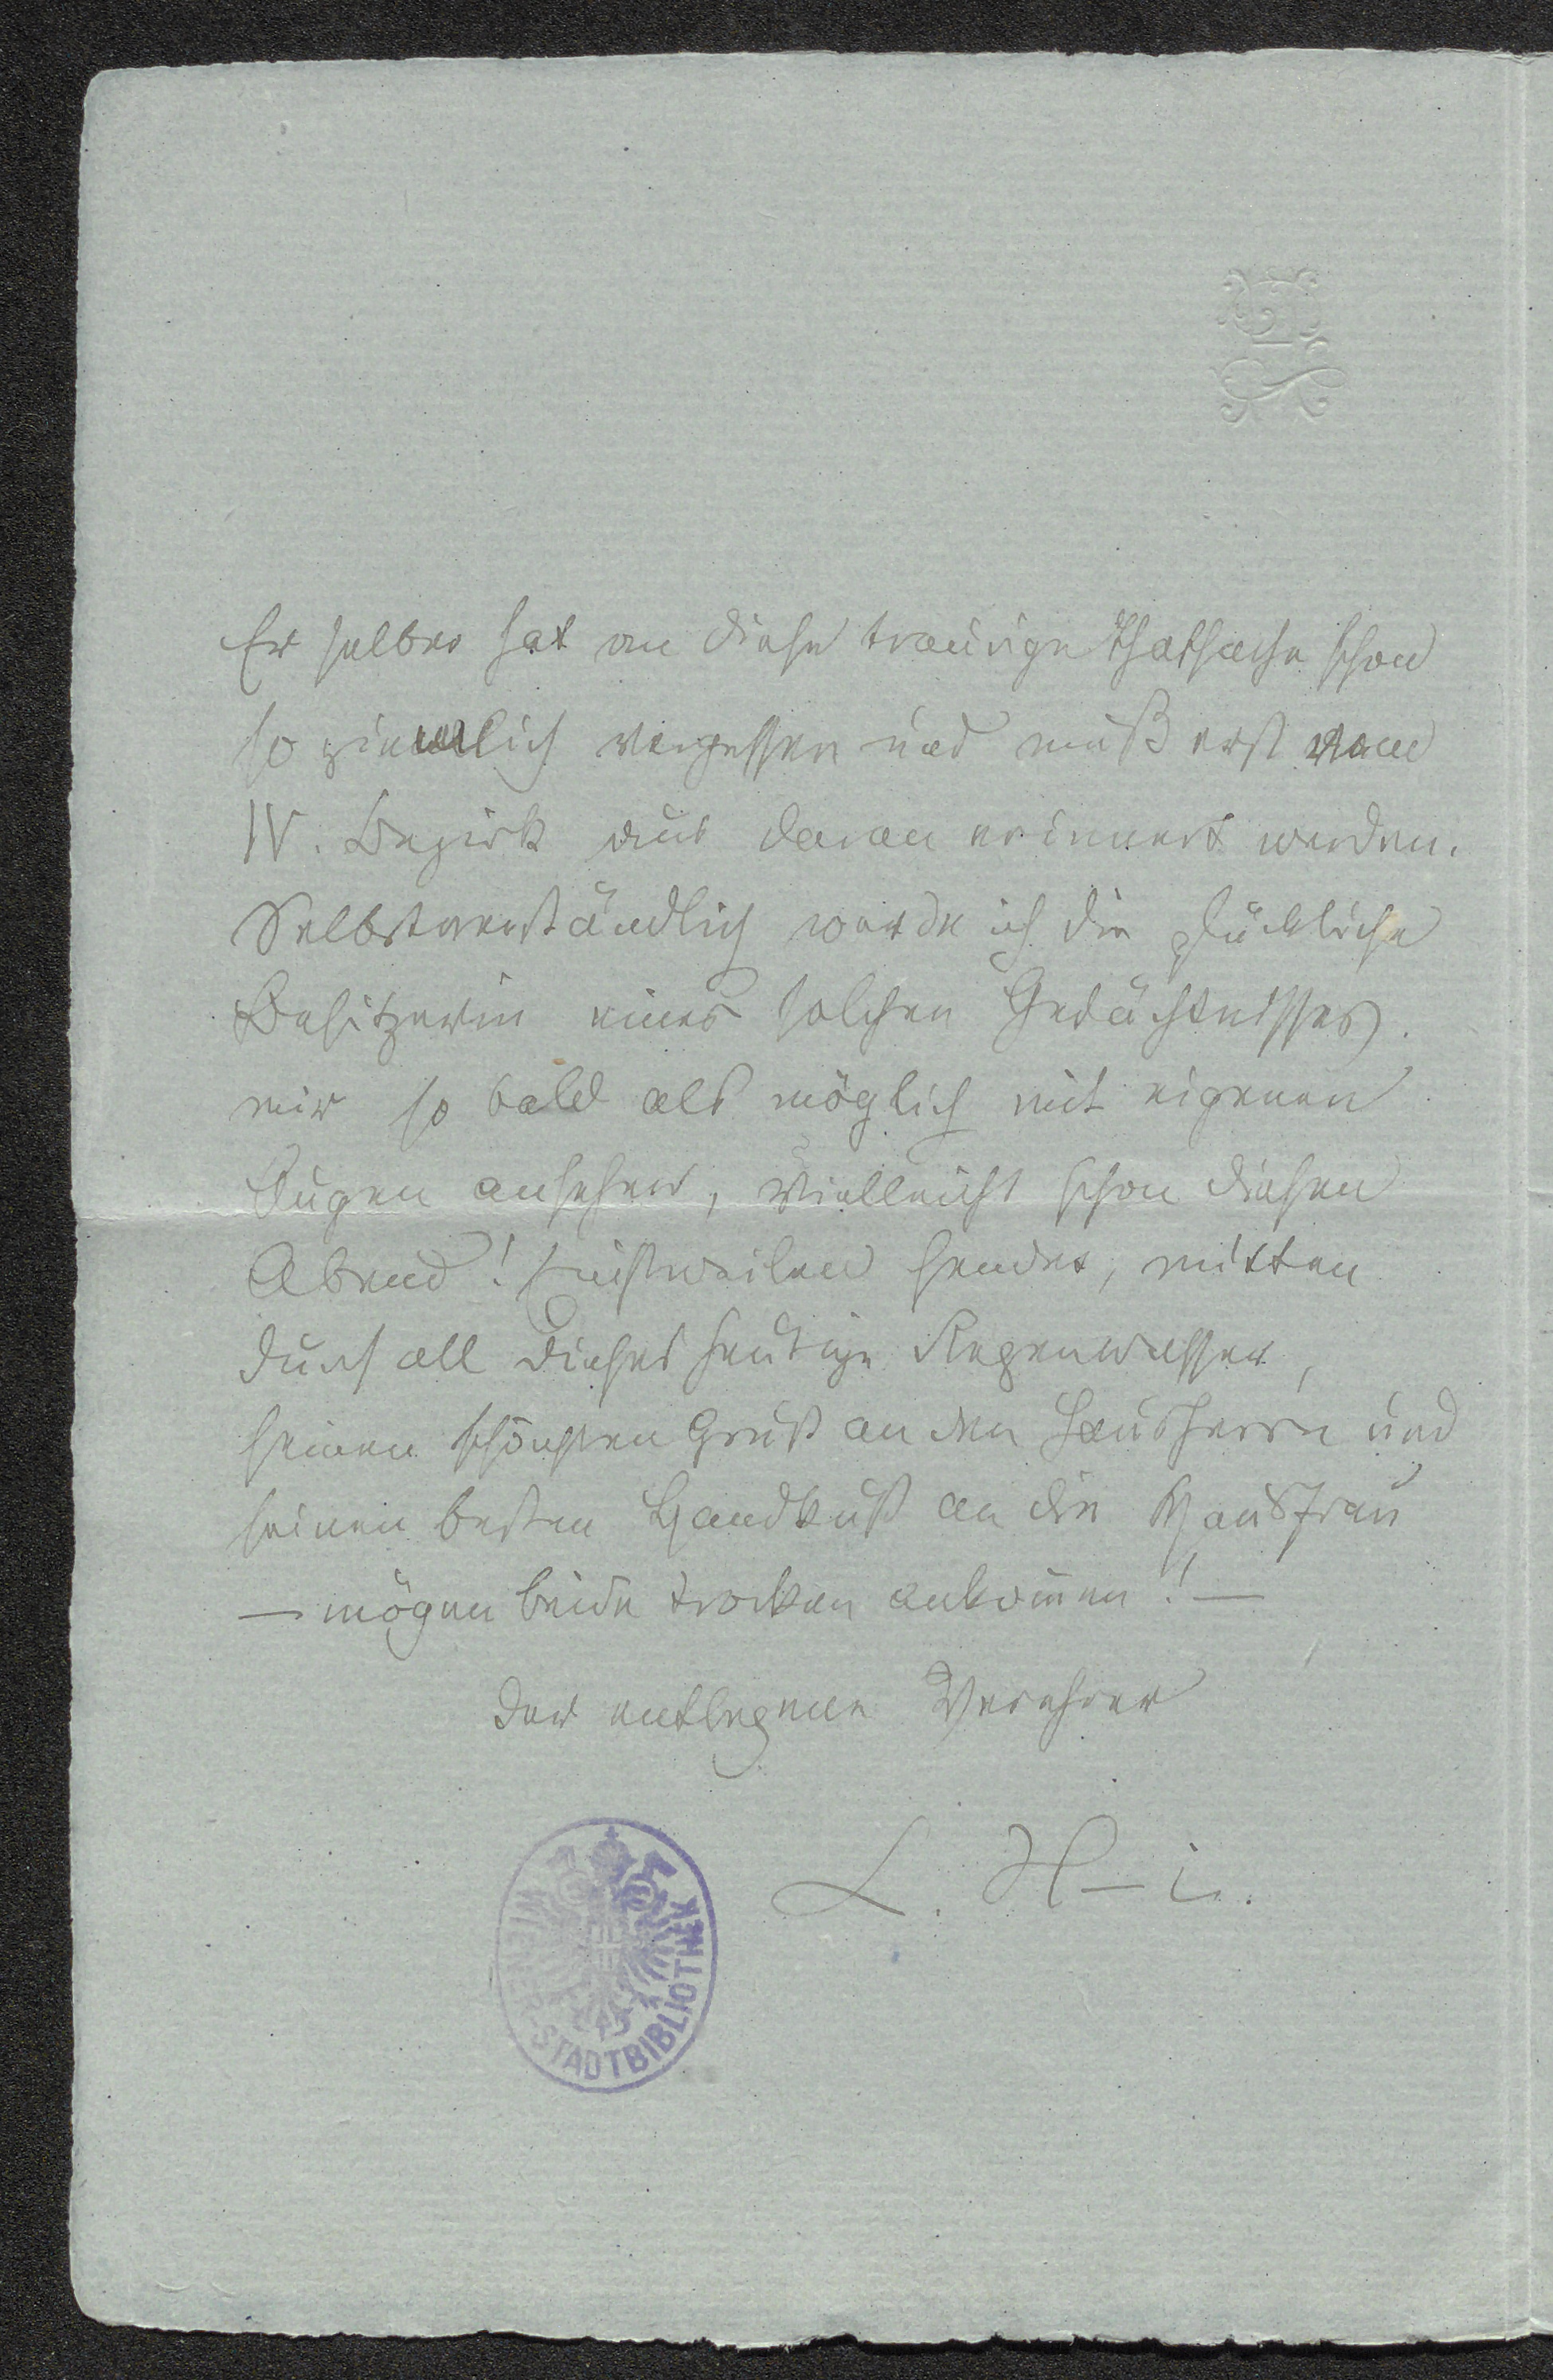 Er selber hat an diese traurige Thatsache schon
so ziemlich vergessen und muß erst vom
IV. Bezirk aus daran erinnert werden.
Selbstverständlich werde ich die glückliche
Besitzerin eines solchen Gedächtnisses
mir so bald als möglich mit eigenen
Augen ansehen, vielleicht schon diesen
Abend! Einstweilen sendet, mitten
durch all dieses heutige Regenwasser,
seinen schönsten Gruß an den Hausherrn und
seinen besten Handkuß an die Hausfrau
— mögen beide trocken ankom̄en! —
der entlegene Verehrer
L. H–i.
WIENER-STADTBIBLIOTHEK